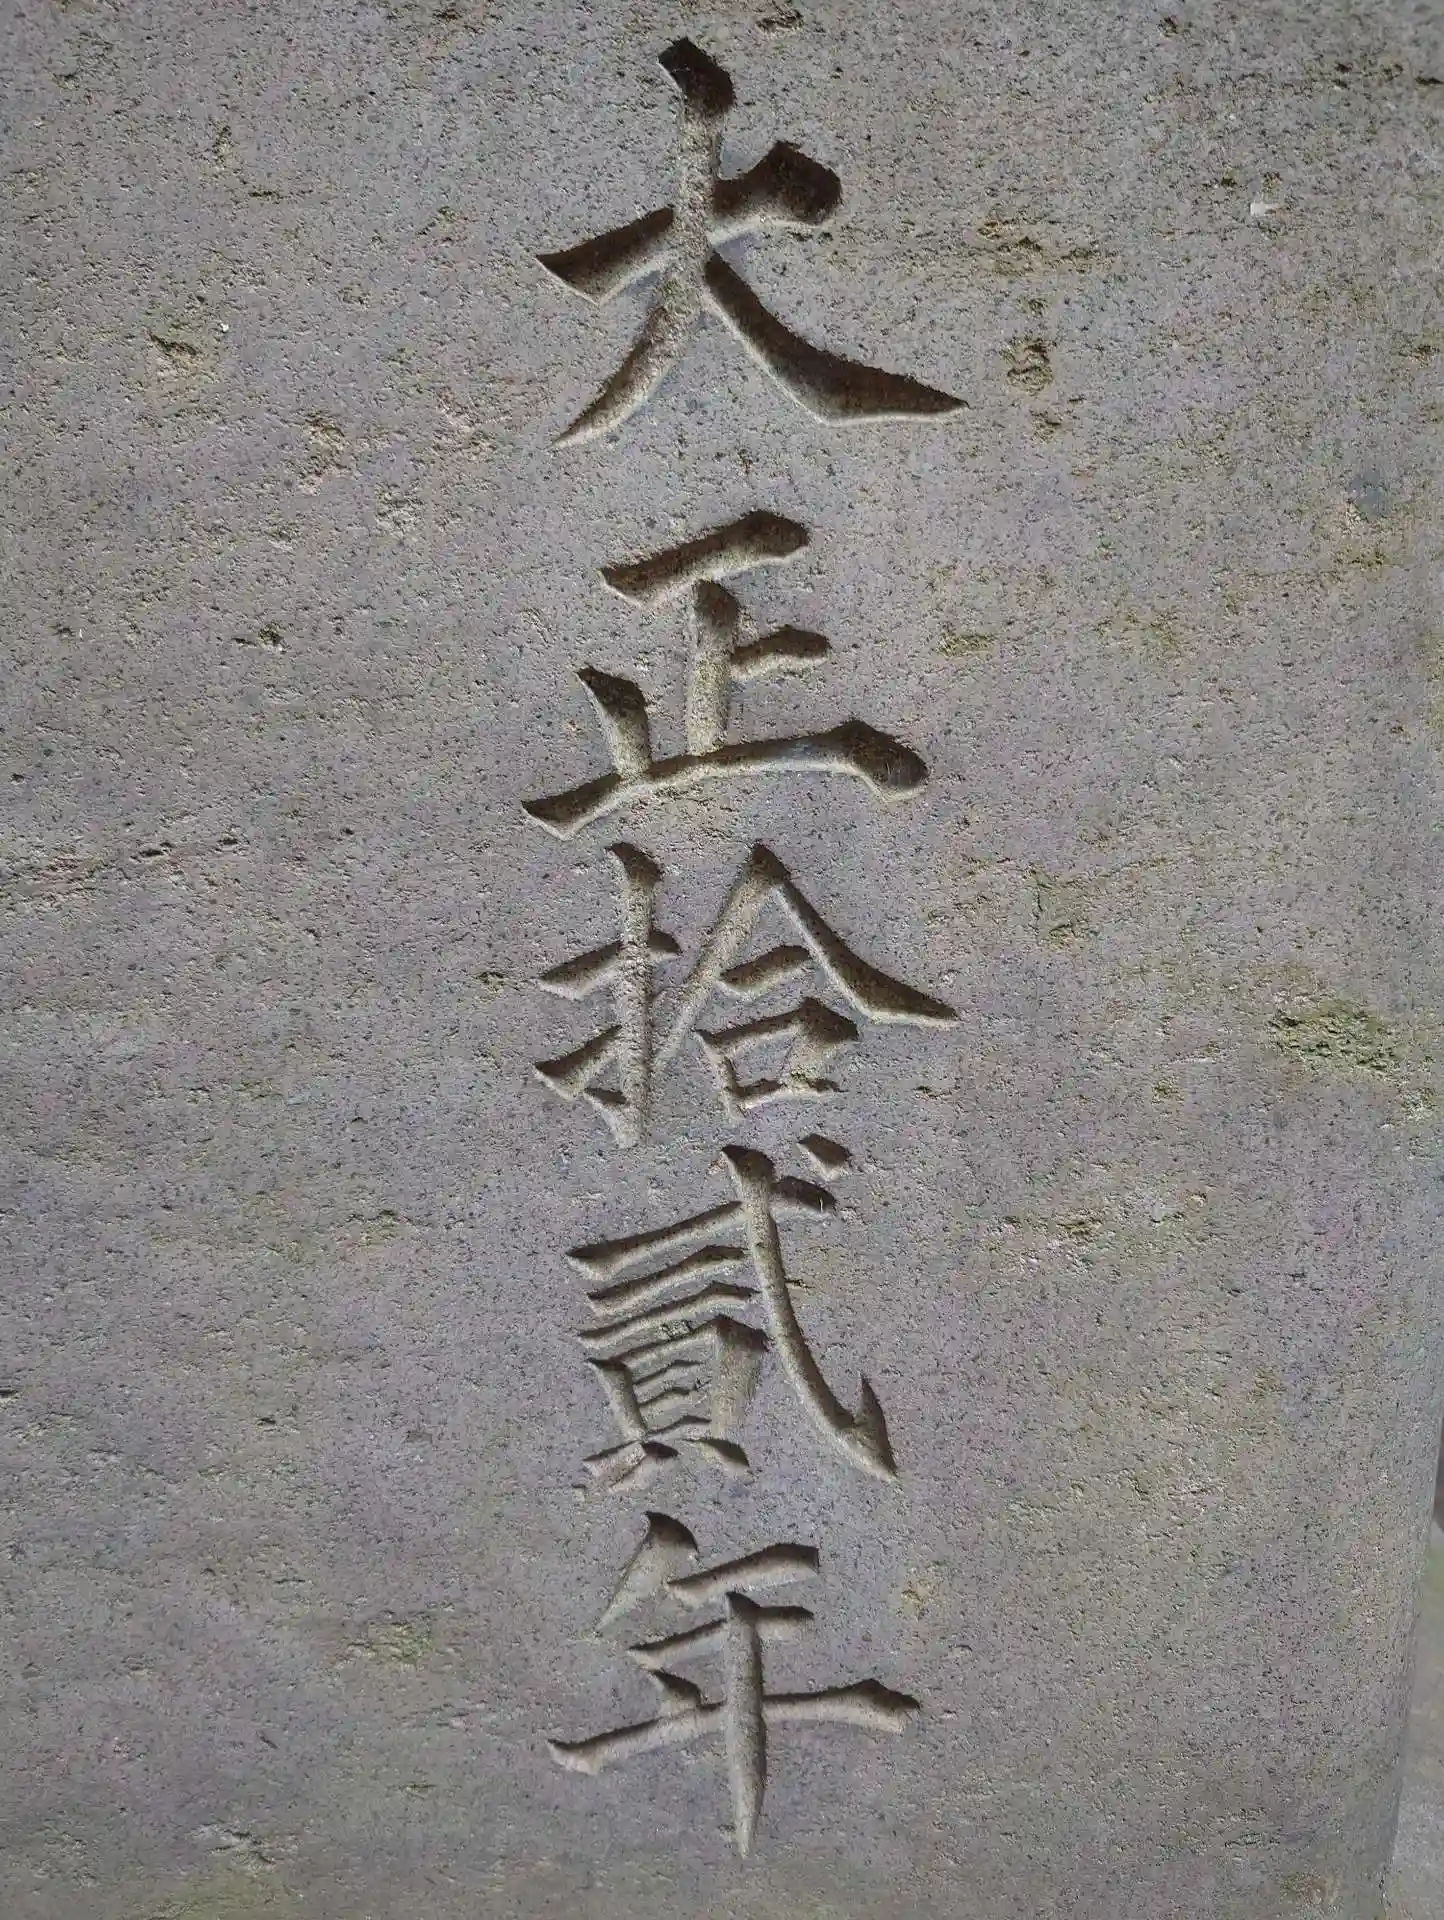 大正拾貳年